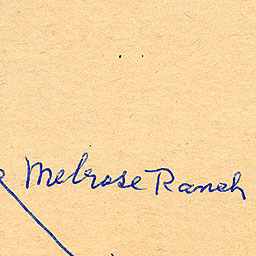 Melrose Ranch